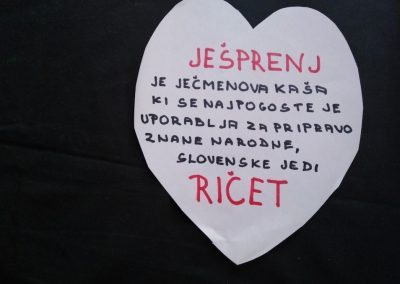 JEŠPRENJ
JE JEČMENOVA KAŠA
KI SE NAJPOGOSTE JE
UPORABLJA ZA PRIPRAVO
ZNANE NARODNE,
SLOVENSKE JEDI
RIČET